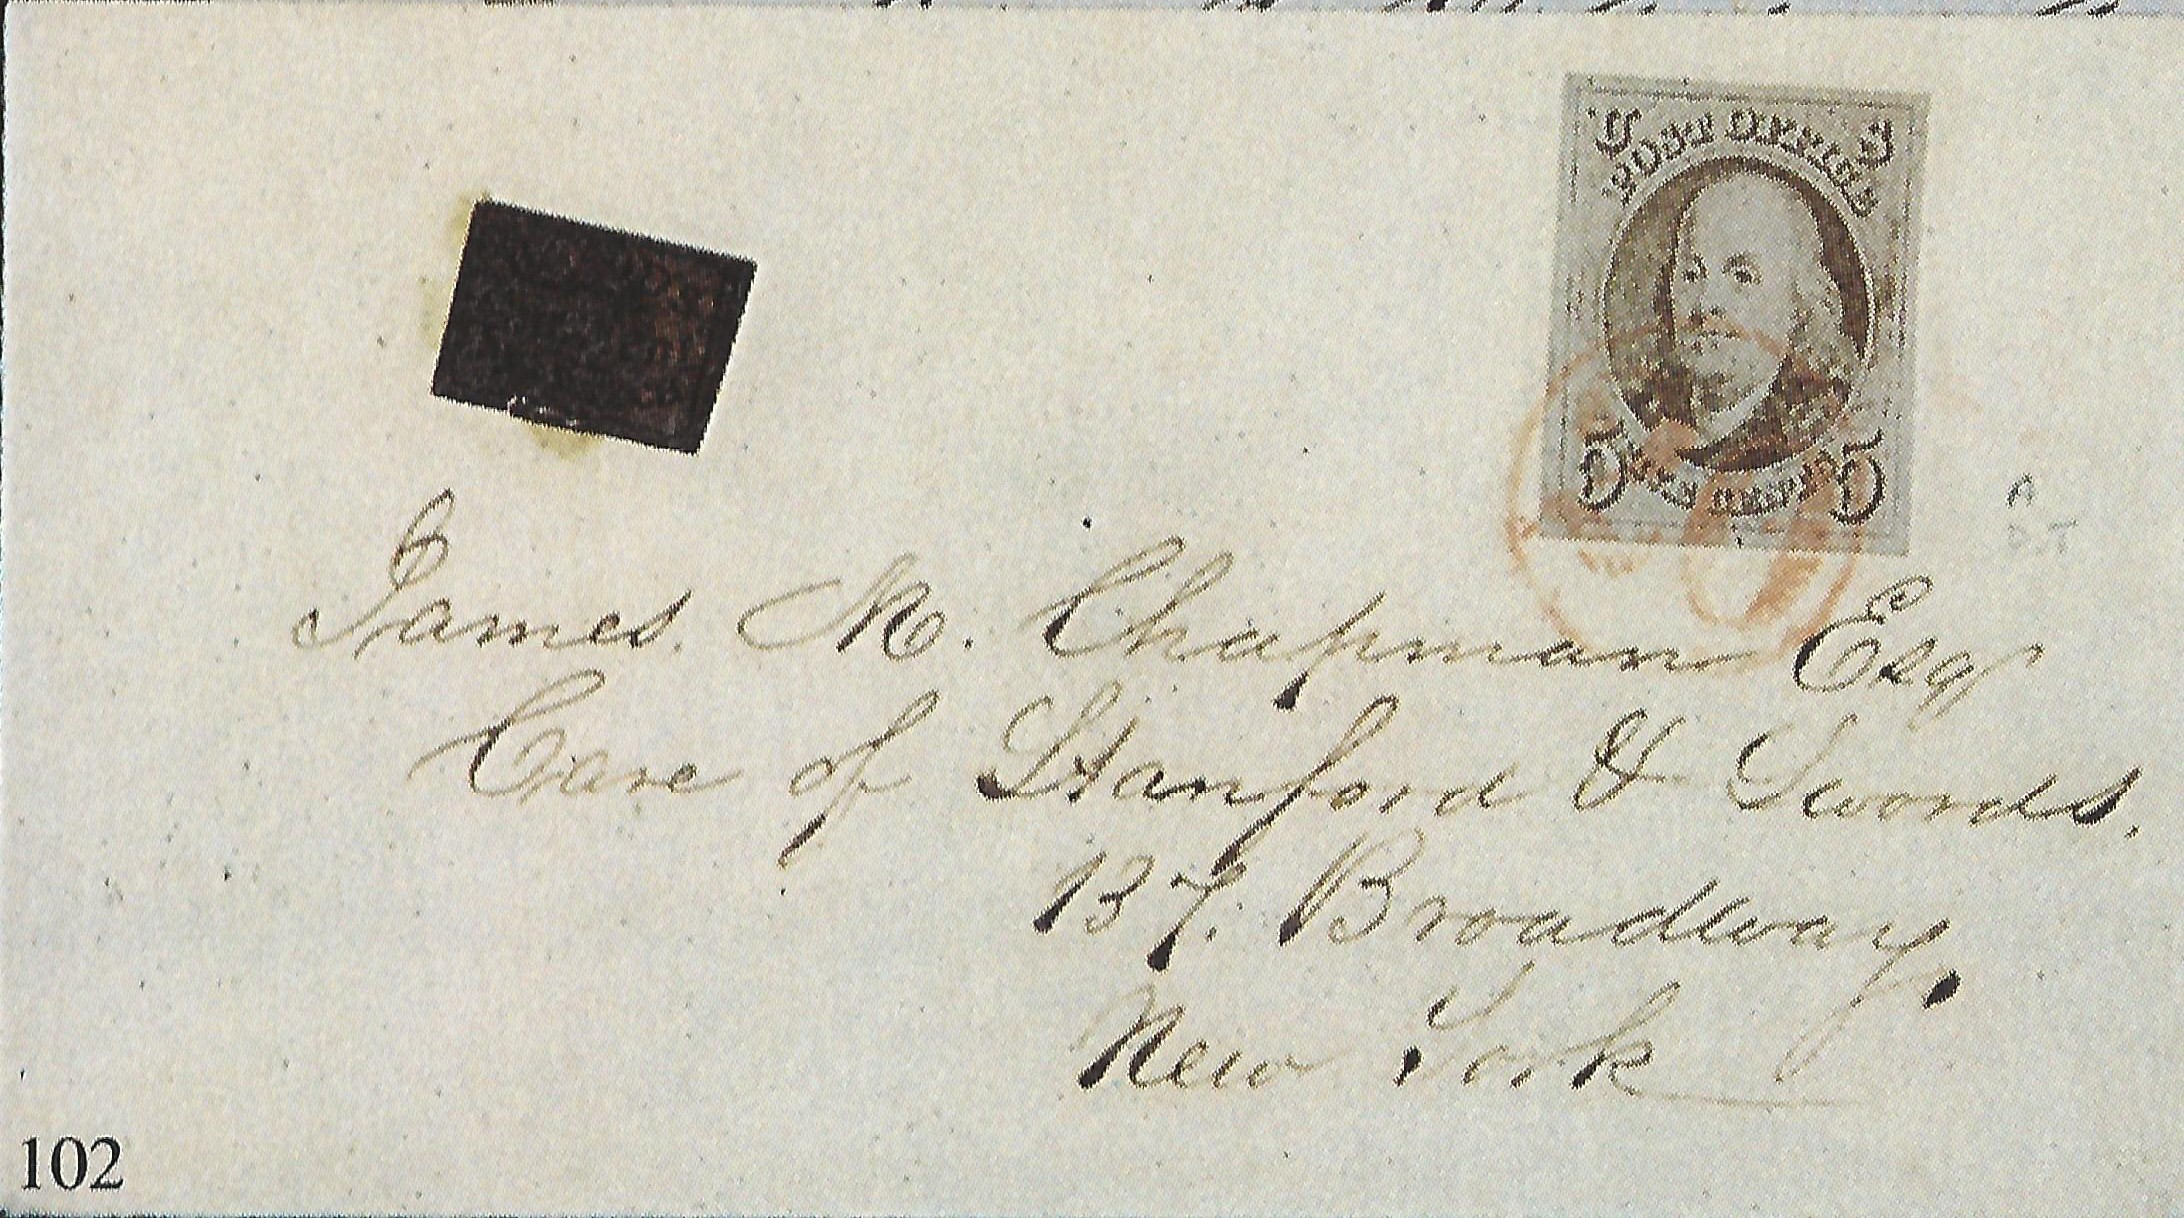 U S
POST OFFICE
5 5
FIVE CENTS
James. M. Chapman Esq
Care of Stanford & Swords.
137. Broadway.
New York
102